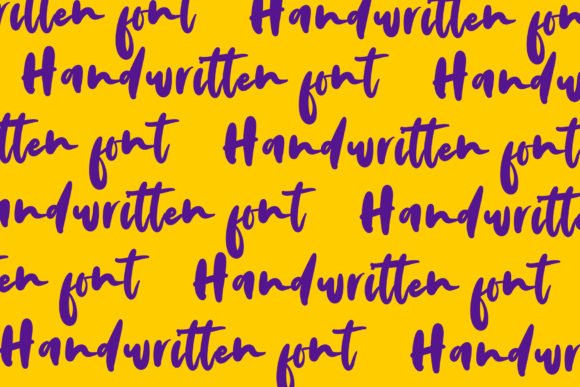 ritten font Handwritten fon
Handwritten font Handw
tten font Handwritten font
andwritten font Handwritte
en font Handwritten font
Handwritten font Handw